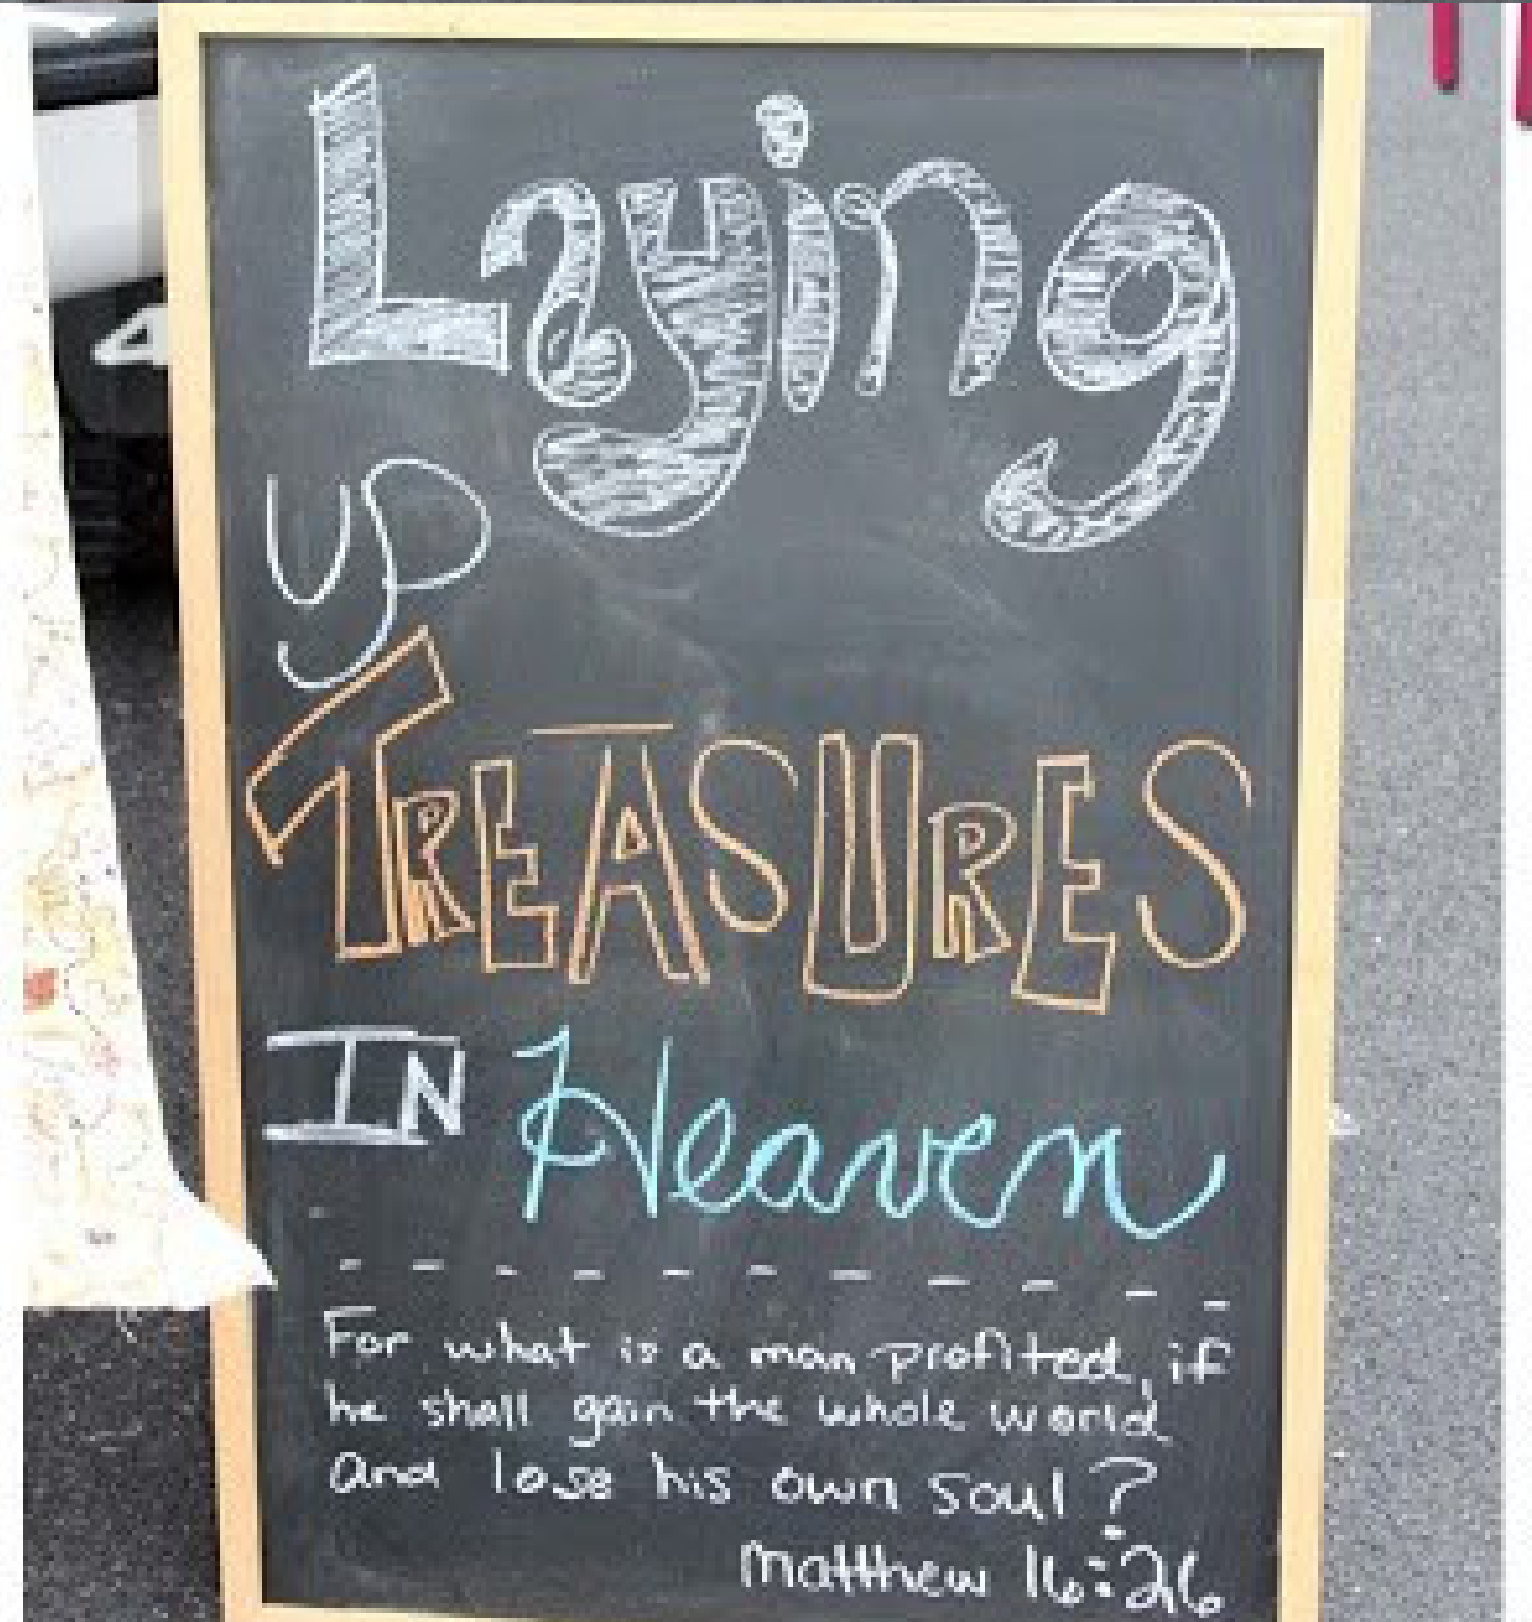 Laying
up
TREASURES
IN Heaven
For what is a man profited, if
he shall gain the whole world
and lose his own soul?
Matthew 16:26